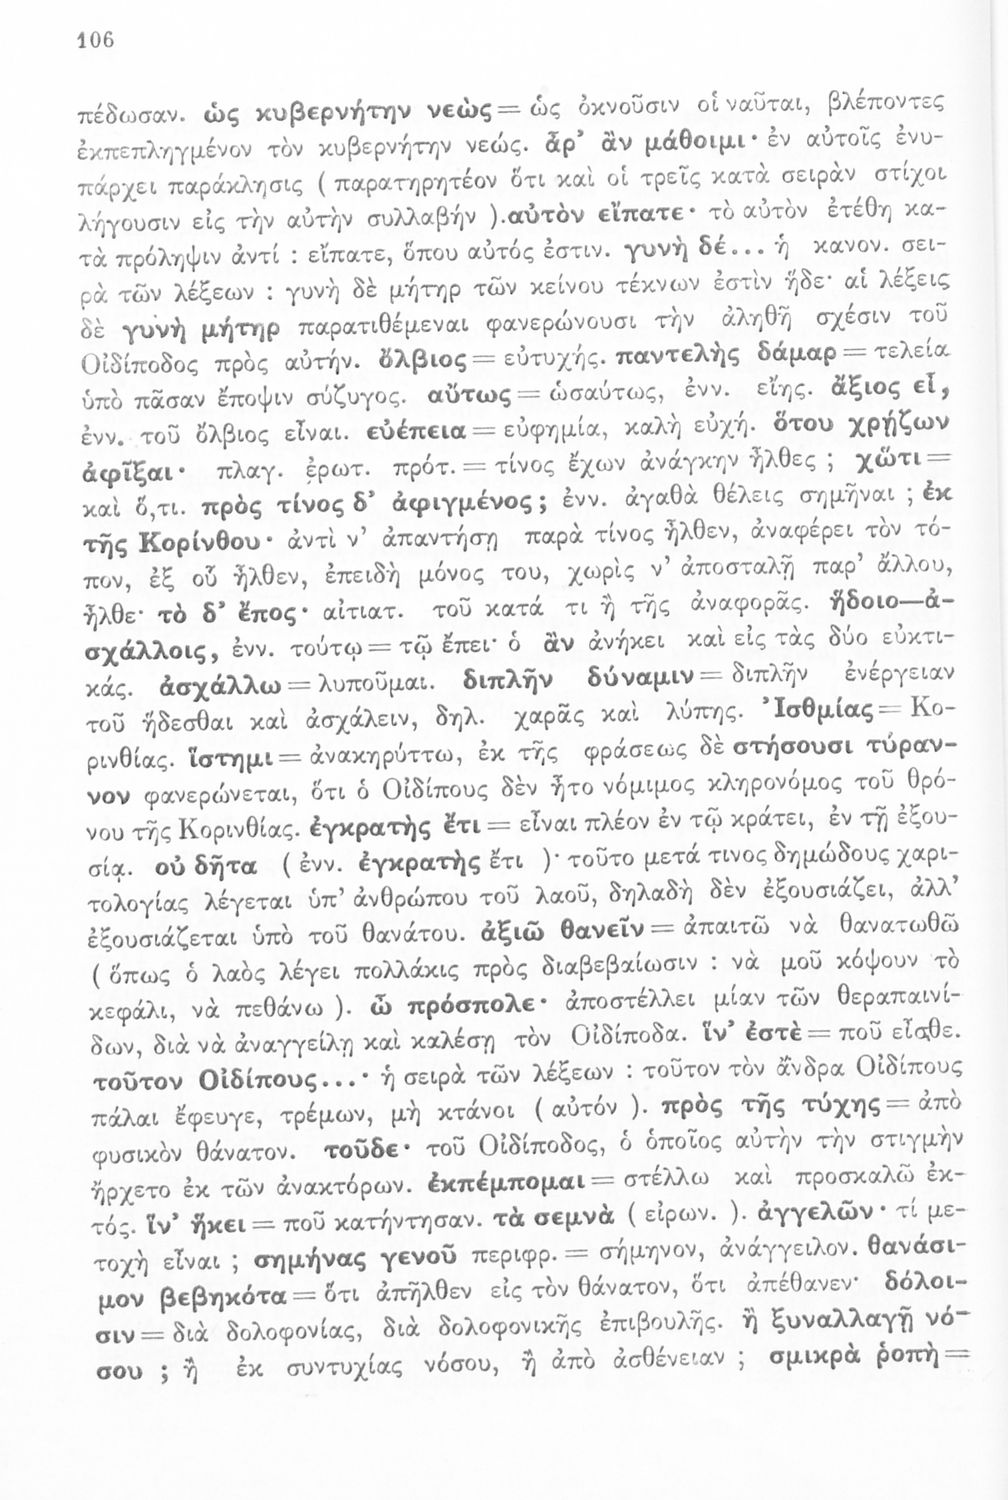 106
πέδωσαν. ὡς κυβερνήτην νεὼς = ὡς ὀκνοῦσιν οἱ ναῦται, βλέποντες
ἐκπεπληγμένον τὸν κυβερνήτην νεώς. ἆρ’ ἂν μάθοιμι· ἐν αὐτοῖς ἐνυ-
πάρχει παράκλησις ( παρατηρητέον ὅτι καὶ οἱ τρεῖς κατὰ σειρὰν στίχοι
λήγουσιν εἰς τὴν αὐτὴν συλλαβήν ).αὐτὸν εἴπατε· τὸ αὐτὸν ἐτέθη κα-
τὰ πρόληψιν ἀντί : εἴπατε, ὅπου αὐτός ἐστιν. γυνὴ δέ... ἡ κανον. σει-
ρὰ τῶν λέξεων : γυνὴ δὲ μήτηρ τῶν κείνου τέκνων ἐστὶν ἥδε· αἱ λέξεις
δὲ γυνὴ μήτηρ παρατιθέμεναι φανερώνουσι τὴν ἀληθῆ σχέσιν τοῦ
Οἰδίποδος πρὸς αὐτήν. ὄλβιος = εὐτυχής. παντελὴς δάμαρ = τελεία
ὑπὸ πᾶσαν ἔποψιν σύζυγος. αὔτως = ὡσαύτως, ἐνν. εἴης. ἄξιος εἶ,
ἐνν. τοῦ ὄλβιος εἶναι. εὐέπεια = εὐφημία, καλὴ εὐχή. ὅτου χρῄζων
ἀφῖξαι· πλαγ. ἐρωτ. πρότ. = τίνος ἔχων ἀνάγκην ἦλθες ; χὤτι =
καὶ ὅ,τι. πρὸς τίνος δ’ ἀφιγμένος; ἐνν. ἀγαθὰ θέλεις σημῆναι ; ἐκ
τῆς Κορίνθου· ἀντὶ ν’ ἀπαντήσῃ παρὰ τίνος ἦλθεν, ἀναφέρει τὸν τό-
πον, ἐξ οὗ ἦλθεν, ἐπειδὴ μόνος του, χωρὶς ν’ ἀποσταλῇ παρ’ ἄλλου,
ἦλθε· τὸ δ’ ἔπος· αἰτιατ. τοῦ κατά τι ἢ τῆς ἀναφορᾶς. ἥδοιο—ἀ-
σχάλλοις, ἐνν. τούτῳ = τῷ ἔπει· ὁ ἂν ἀνήκει καὶ εἰς τὰς δύο εὐκτι-
κάς. ἀσχάλλω = λυποῦμαι. διπλῆν δύναμιν = διπλῆν ἐνέργειαν
τοῦ ἥδεσθαι καὶ ἀσχάλειν, δηλ. χαρᾶς καὶ λύπης. Ἰσθμίας = Κο-
ρινθίας. ἵστημι = ἀνακηρύττω, ἐκ τῆς φράσεως δὲ στήσουσι τύραν-
νον φανερώνεται, ὅτι ὁ Οἰδίπους δὲν ἦτο νόμιμος κληρονόμος τοῦ θρό-
νου τῆς Κορινθίας. ἐγκρατὴς ἔτι = εἶναι πλέον ἐν τῷ κράτει, ἐν τῇ ἐξου-
σίᾳ. οὐ δῆτα ( ἐνν. ἐγκρατὴς ἔτι )· τοῦτο μετά τινος δημώδους χαρι-
τολογίας λέγεται ὑπ’ ἀνθρώπου τοῦ λαοῦ, δηλαδὴ δὲν ἐξουσιάζει, ἀλλ’
ἐξουσιάζεται ὑπὸ τοῦ θανάτου. ἀξιῶ θανεῖν = ἀπαιτῶ νὰ θανατωθῶ
( ὅπως ὁ λαὸς λέγει πολλάκις πρὸς διαβεβαίωσιν : νὰ μοῦ κόψουν τὸ
κεφάλι, νὰ πεθάνω ). ὦ πρόσπολε· ἀποστέλλει μίαν τῶν θεραπαινί-
δων, διὰ νὰ ἀναγγείλῃ καὶ καλέσῃ τὸν Οἰδίποδα. ἵν’ ἐστὲ = ποῦ εἶσθε.
τοῦτον Οἰδίπους...· ἡ σειρὰ τῶν λέξεων : τοῦτον τὸν ἄνδρα Οἰδίπους
πάλαι ἔφευγε, τρέμων, μὴ κτάνοι ( αὐτόν ). πρὸς τῆς τύχης = ἀπὸ
φυσικὸν θάνατον. τοῦδε· τοῦ Οἰδίποδος, ὁ ὁποῖος αὐτὴν τὴν στιγμὴν
ἤρχετο ἐκ τῶν ἀνακτόρων. ἐκπέμπομαι = στέλλω καὶ προσκαλῶ ἐκ-
τός. ἵν’ ἥκει = ποῦ κατήντησαν. τὰ σεμνὰ ( εἰρων. ). ἀγγελῶν· τί με-
τοχὴ εἶναι ; σημήνας γενοῦ περιφρ. = σήμηνον, ἀνάγγειλον. θανάσι-
μον βεβηκότα = ὅτι ἀπῆλθεν εἰς τὸν θάνατον, ὅτι ἀπέθανεν· δόλοι-
σιν = διὰ δολοφονίας, διὰ δολοφονικῆς ἐπιβουλῆς. ἢ ξυναλλαγῇ νό-
σου ; ἢ ἐκ συντυχίας νόσου, ἢ ἀπὸ ἀσθένειαν ; σμικρὰ ῥοπὴ =